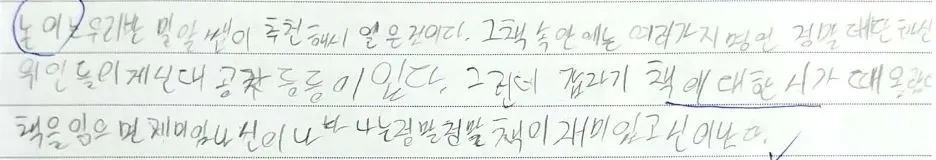 논어는 우리반 밀알쌤이 추천해서 읽은 것이다. 그 책 속 안에는 여러가지 명언 정말 대단하신
위인들이 계신대 공잣 등등이 있다. 그런데 갑라기 책에 대한 시가 때올랐다
책을 읽으면 제미있나 신이나 나는 정말 정말 책이 재미있고 신이난다.